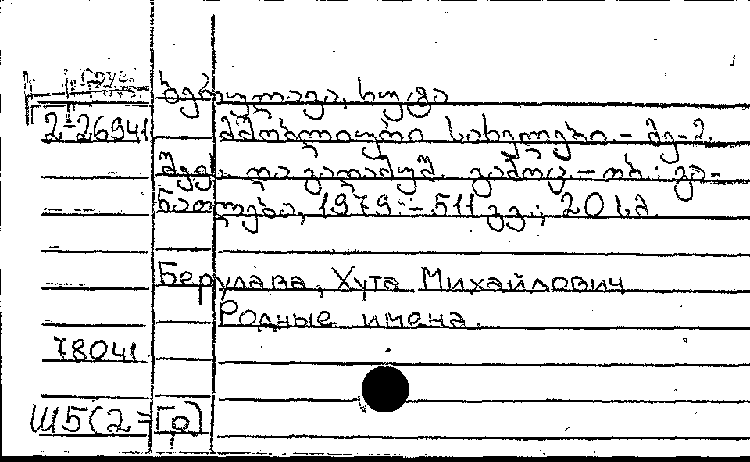 Груз.
ბერულავა, ხუტა
2-26941 მშობლიური სახელები. - მე-2
შევს. და გადამუშ. გამოც. - თბ.: გა-
ნათლება, 1979. - 511 გვ.; 20 სმ.
Берулава, Хута Михайлович
Родные имена.
78041
Ш5(2=Гр)